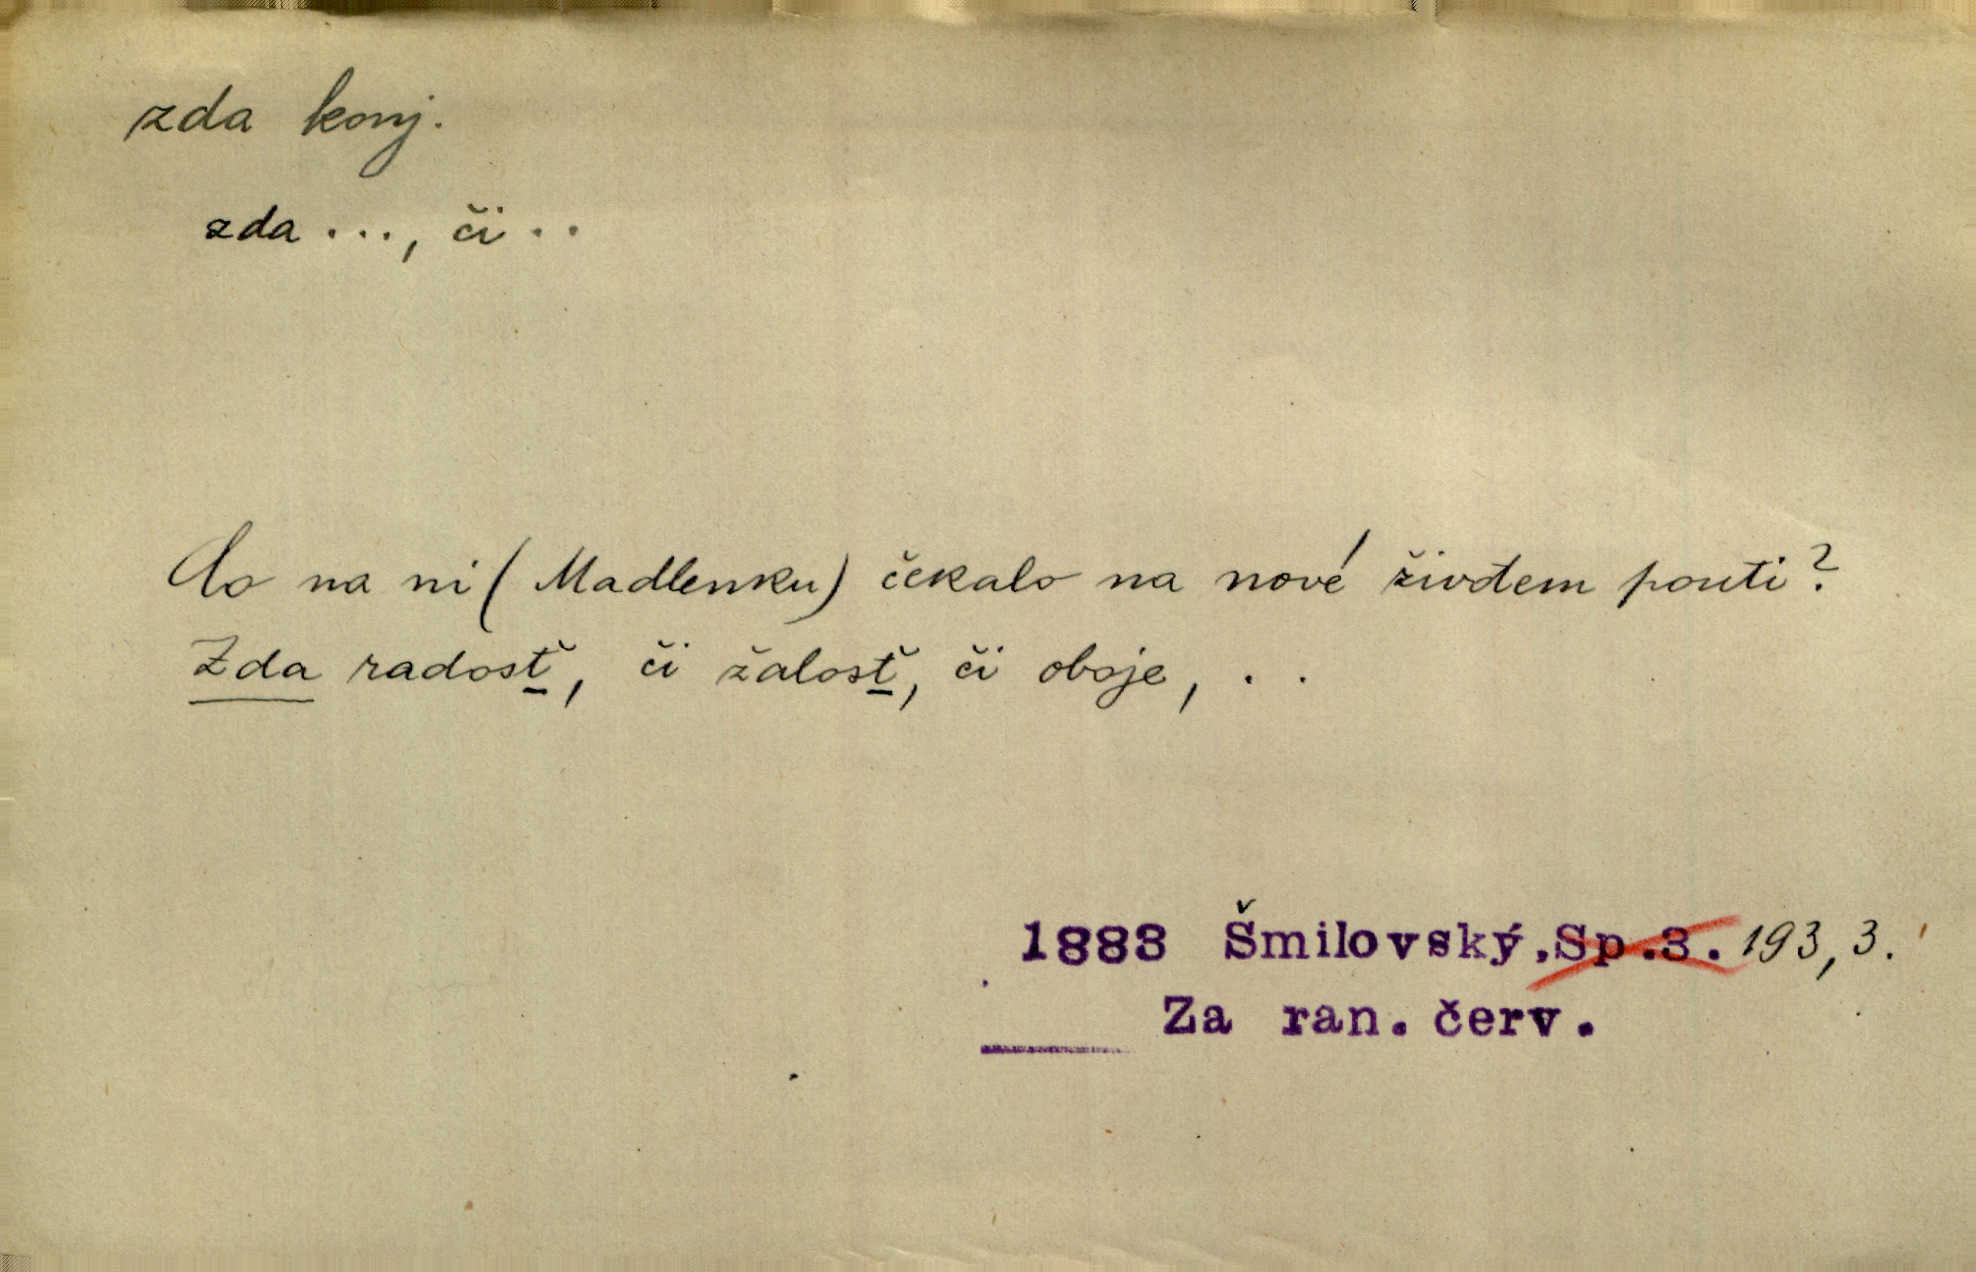 zda konj.
zda ..., či ..
Co na ni (Madlenku) čekalo na nové životem pouti?
Zda radosť, či žalosť, či oboje, . .
1883 Šmilovský, Sp.3. 193, 3.
Za ran. červ.